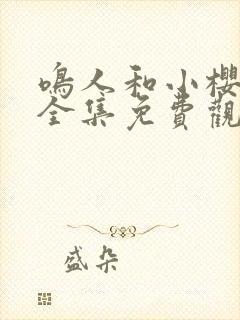 鳴人和小櫻
全集免費觀
盛朵